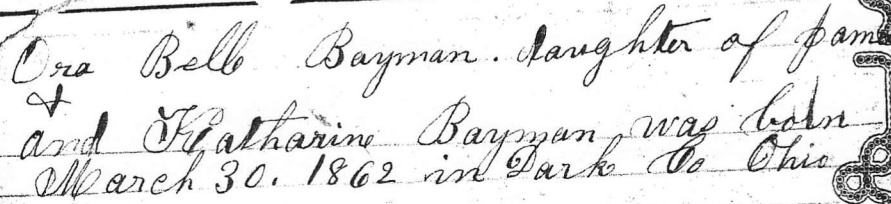 Ora Bell Bayman. daughter of Jame
&
and Katharine Bayman was born
March 30. 1862 in Dark Co Ohio